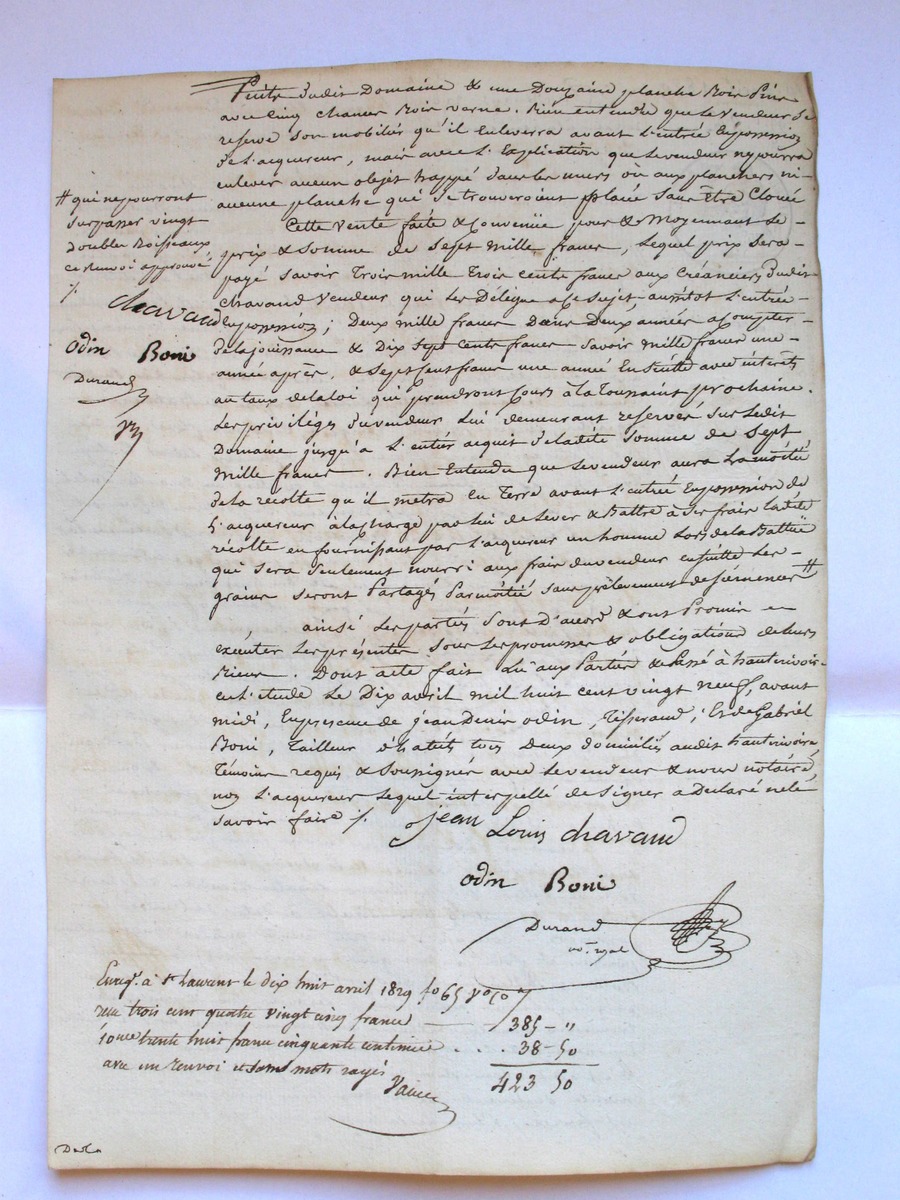 dudit Domaine & une Douzaine planche Bois Pin
avec Cinq chanes Bois verne. Bien entendu que le vendeur Se
reserve Son mobiliés qu'il Enleverra avant l'entrée Enpossession
de l'acquereur, mais avec l'Explication que levendeur nepourra
enlever aucun objet happé Dans les murs où aux planchers ni
aucune planche qui Se trouveroient placée Sans Être Clouée
Cette vente faite & Convenüe pour & Moyennant Le
prix & Somme de Sept mille francs, Lequel prix Sera
payé Savoir Trois mille Trois cents francs aux Créanciers dudit
Chavand vendeur qui les Délégue a Ce Sujet, aussitot l'entrée
Enpossession; Deux mille francs Dans Deux années a Compter
de la jouissance & Dix Sept Cents francs Savoir mille francs une
année après, & Sept Cent francs une année Ensuitte avec intérets
au taux de la loi qui prendront Cours à la Toussaint prochaine.
Les priviléges du vendeur Lui demeurant réservés Sur Ledit
Domaine jusqu'à l'entier acquit de ladite Somme de Sept
Mille francs. Bien Entendu que levendeur aura La moitié
de la récolte qu'il metra En Terre avant l'entrée Enpossession de
l'acquereur à la Charge par lui de Lever & Battre à Ses frais ladite
récolte en fournissant par l'acquereur un homme Lors de la Battüe
qui Sera Seulement nourri aux frais du vendeur ensuitte Les
grains Seront Partagés Par moitié Sans prélevement de Semences #
# qui ne pourront
Surpasser vingt
doubles Boisseaux
ce renvoi approuvé
Chavand
odin Boni
Durand
ainsi Les parties Sont d'acord & ont Promis
executer Les présentes Sous Les promesses & obligations de leurs
Biens. Dont acte fait Lu aux Parties & Passé à hautrivoir
en l'etude Le Dix avril mil huit cent vingt neuf, avant
midi, En presence de jean Denis odin, Tisserand, & de Gabriel
Boni, Tailleur d'habits tous Deux domiciliés audit hautrivoire,
Témoins requis & Soussignés avec Levendeur & nous notaire,
non l'acquereur Lequel interpellé de Signer a Declaré ne le
Savoir faire /.
jean Louis chavand
odin Boni
Durand
no.re royal
Enreg.é à S.t Laurent le dix huit avril 1829 f.o 65 v.o
reçu trois cent quatre vingt cinq francs — 385 — "
10.me trente huit francs cinquante centimes . . . 38 - 50
avec un renvoi et sans mots rayés
423 50